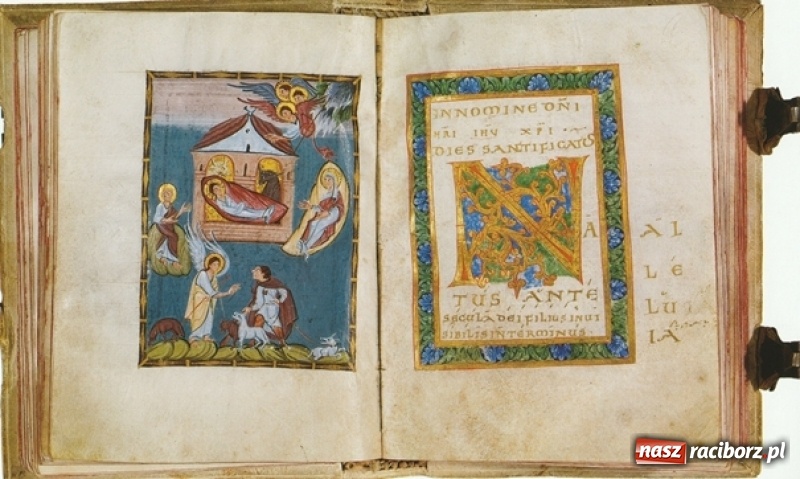 IN NOMINE DNI
NRI IHV XPI
DIES SANTIFICATUS
NA
TUS ANTE
SECULA DEI FILIUS INUI
SIBILIS INTERMINUS
AL
LE
LU
IA
nasz raciborz.pl